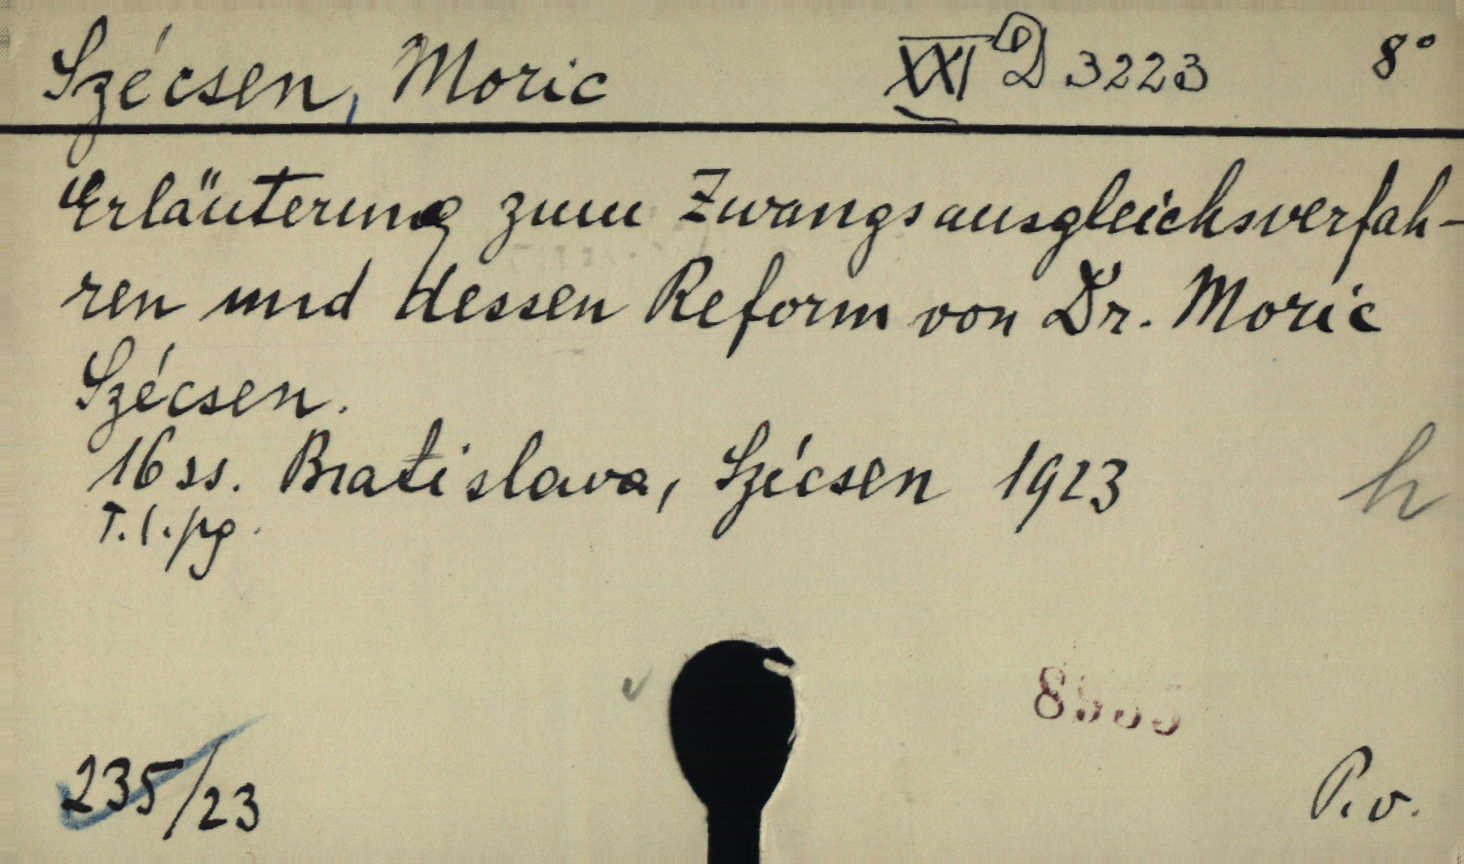 Szécsen, Moric XXI D 3223 8°
Erläuterung zum Zwangsausgleichsverfah-
ren und dessen Reform von Dr. Moric
Szécsen.
16 ss. Bratislava, Szécsen 1923
h
235/23
P.v.